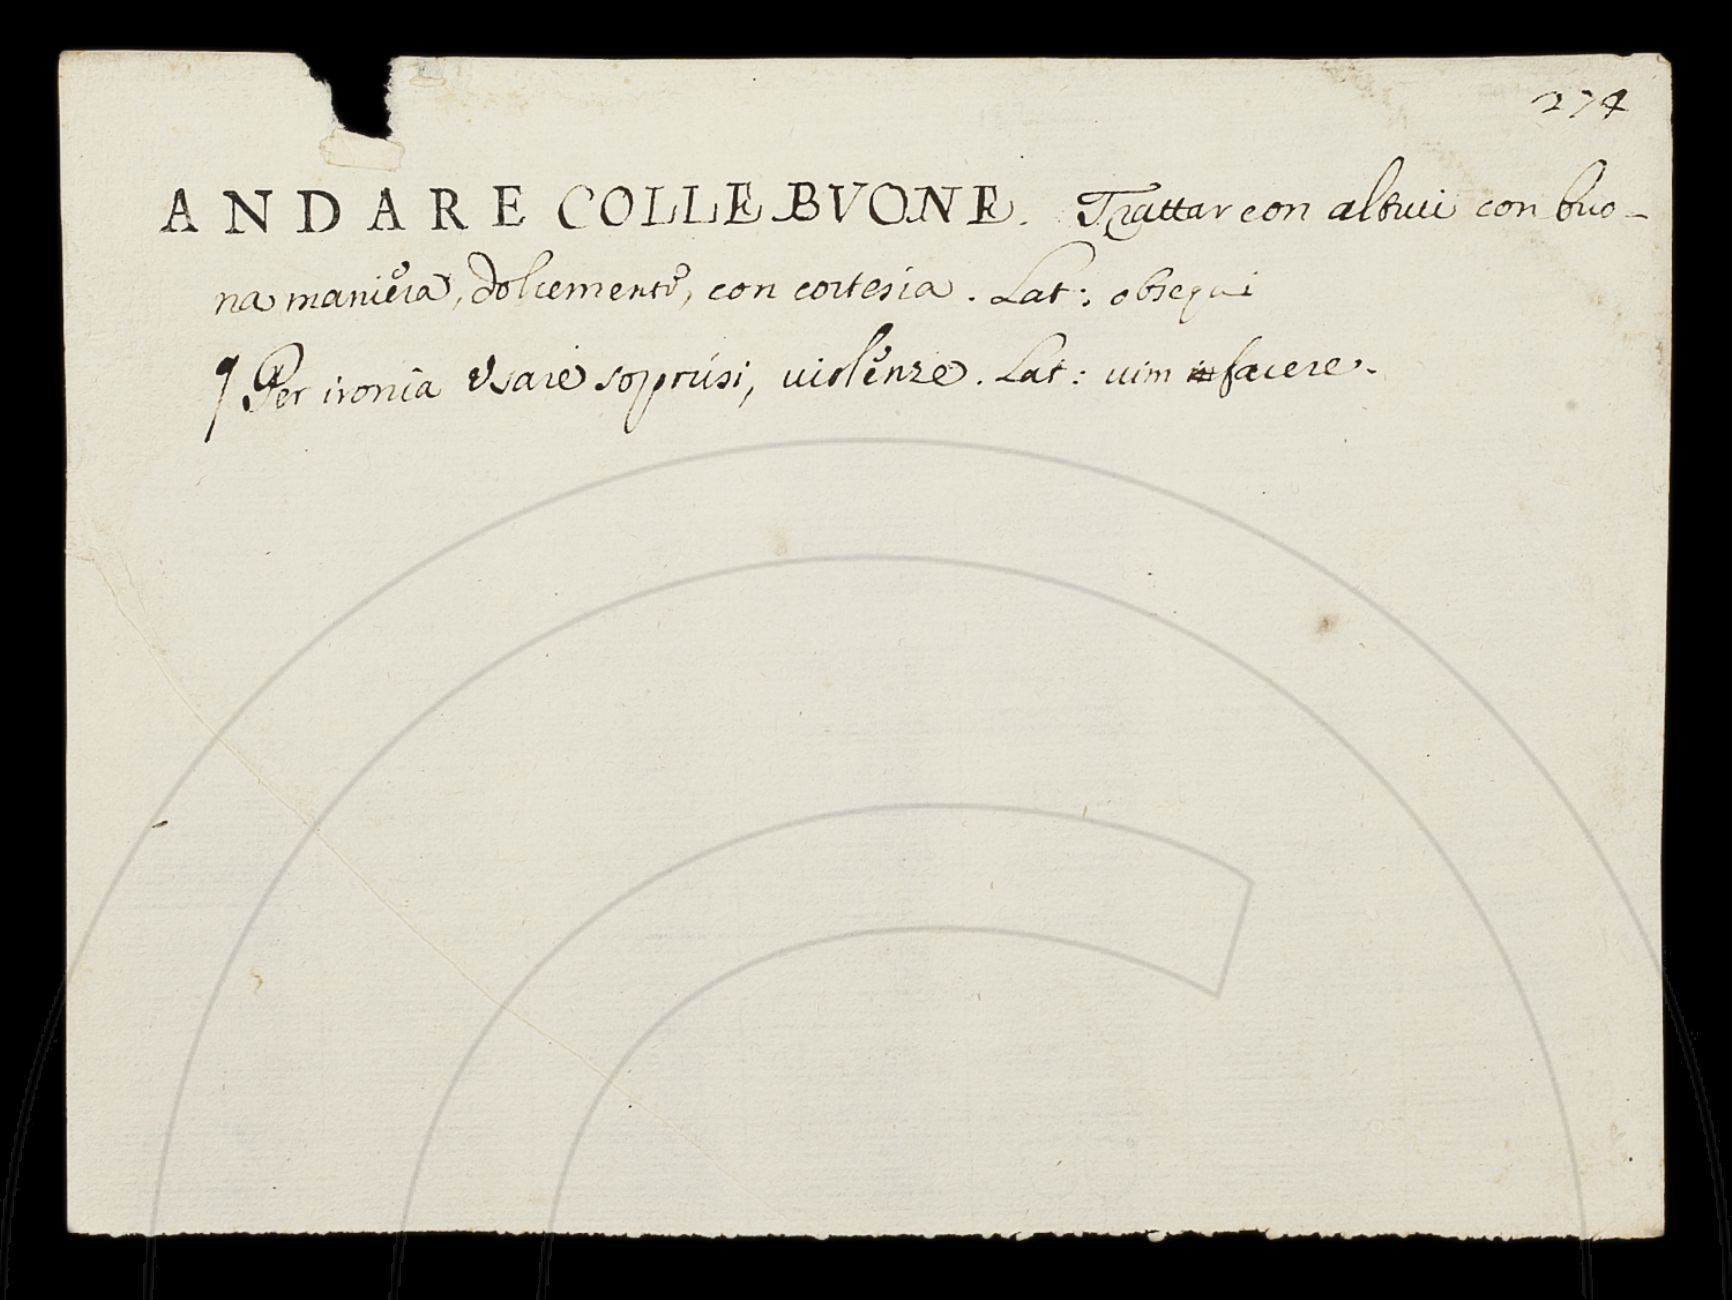 274
ANDARE COLLE BVONE. Trattar con altrui con buo-
na maniera, dolcemente, con cortesia. Lat: obsequi
¶ Per ironia Vsare soprusi, uiolenze. Lat: uim facere.